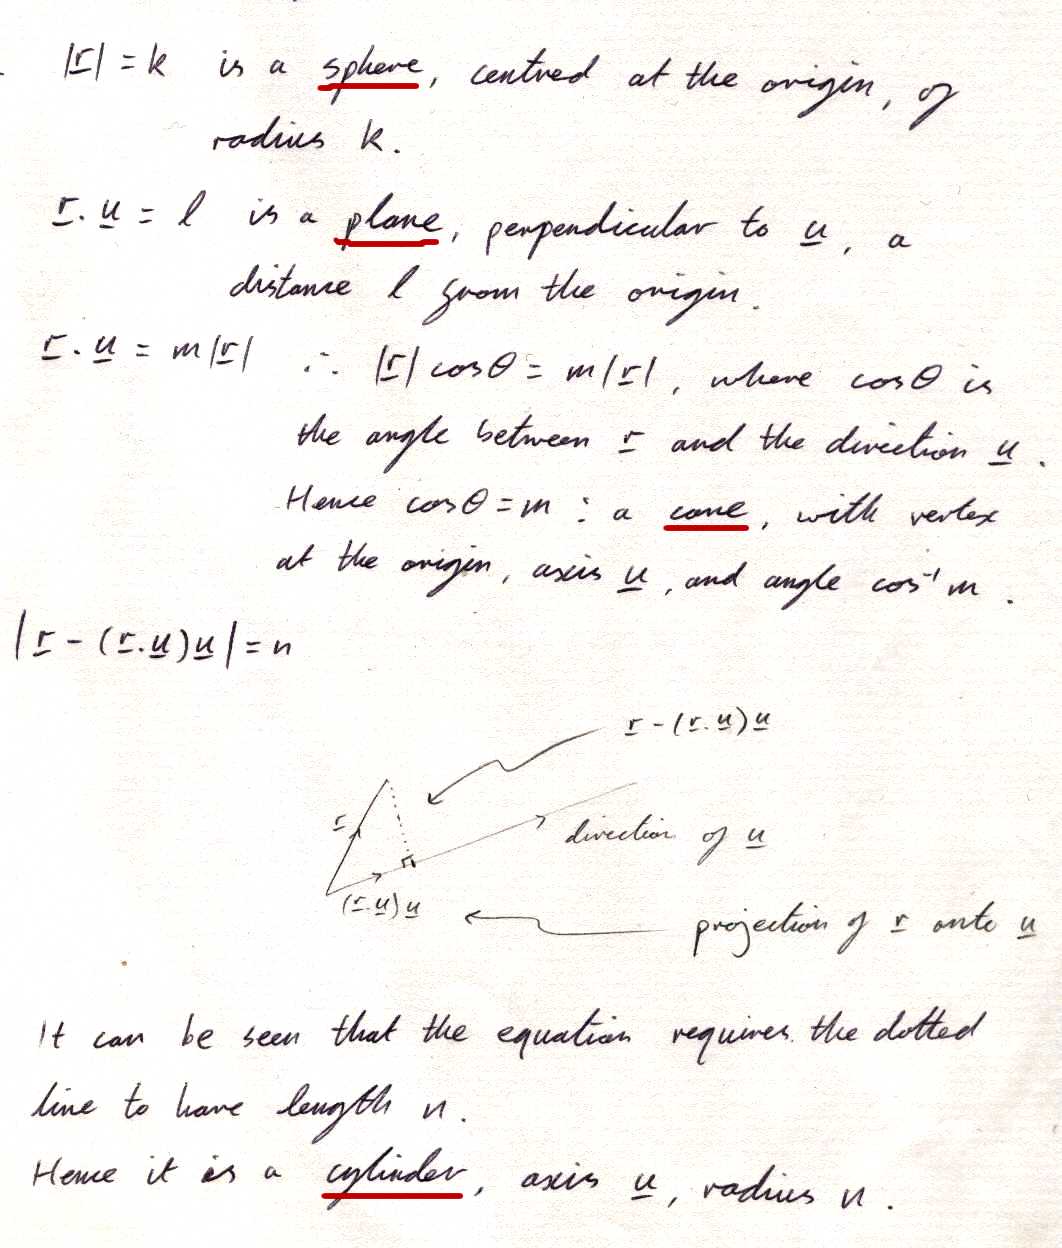 |r| = k is a sphere, centred at the origin, of
radius k.
r. u = l is a plane, perpendicular to u, a
distance l from the origin.
r. u = m|r| ∴ |r| cosθ = m|r|, where cosθ is
the angle between r and the direction u.
Hence cosθ = m : a cone, with vertex
at the origin, axis u, and angle cos⁻¹ m.
|r - (r.u)u| = n
r - (r.u)u
r
direction of u
(r.u)u
projection of r onto u
It can be seen that the equation requires the dotted
line to have length n.
Hence it is a cylinder, axis u, radius n.